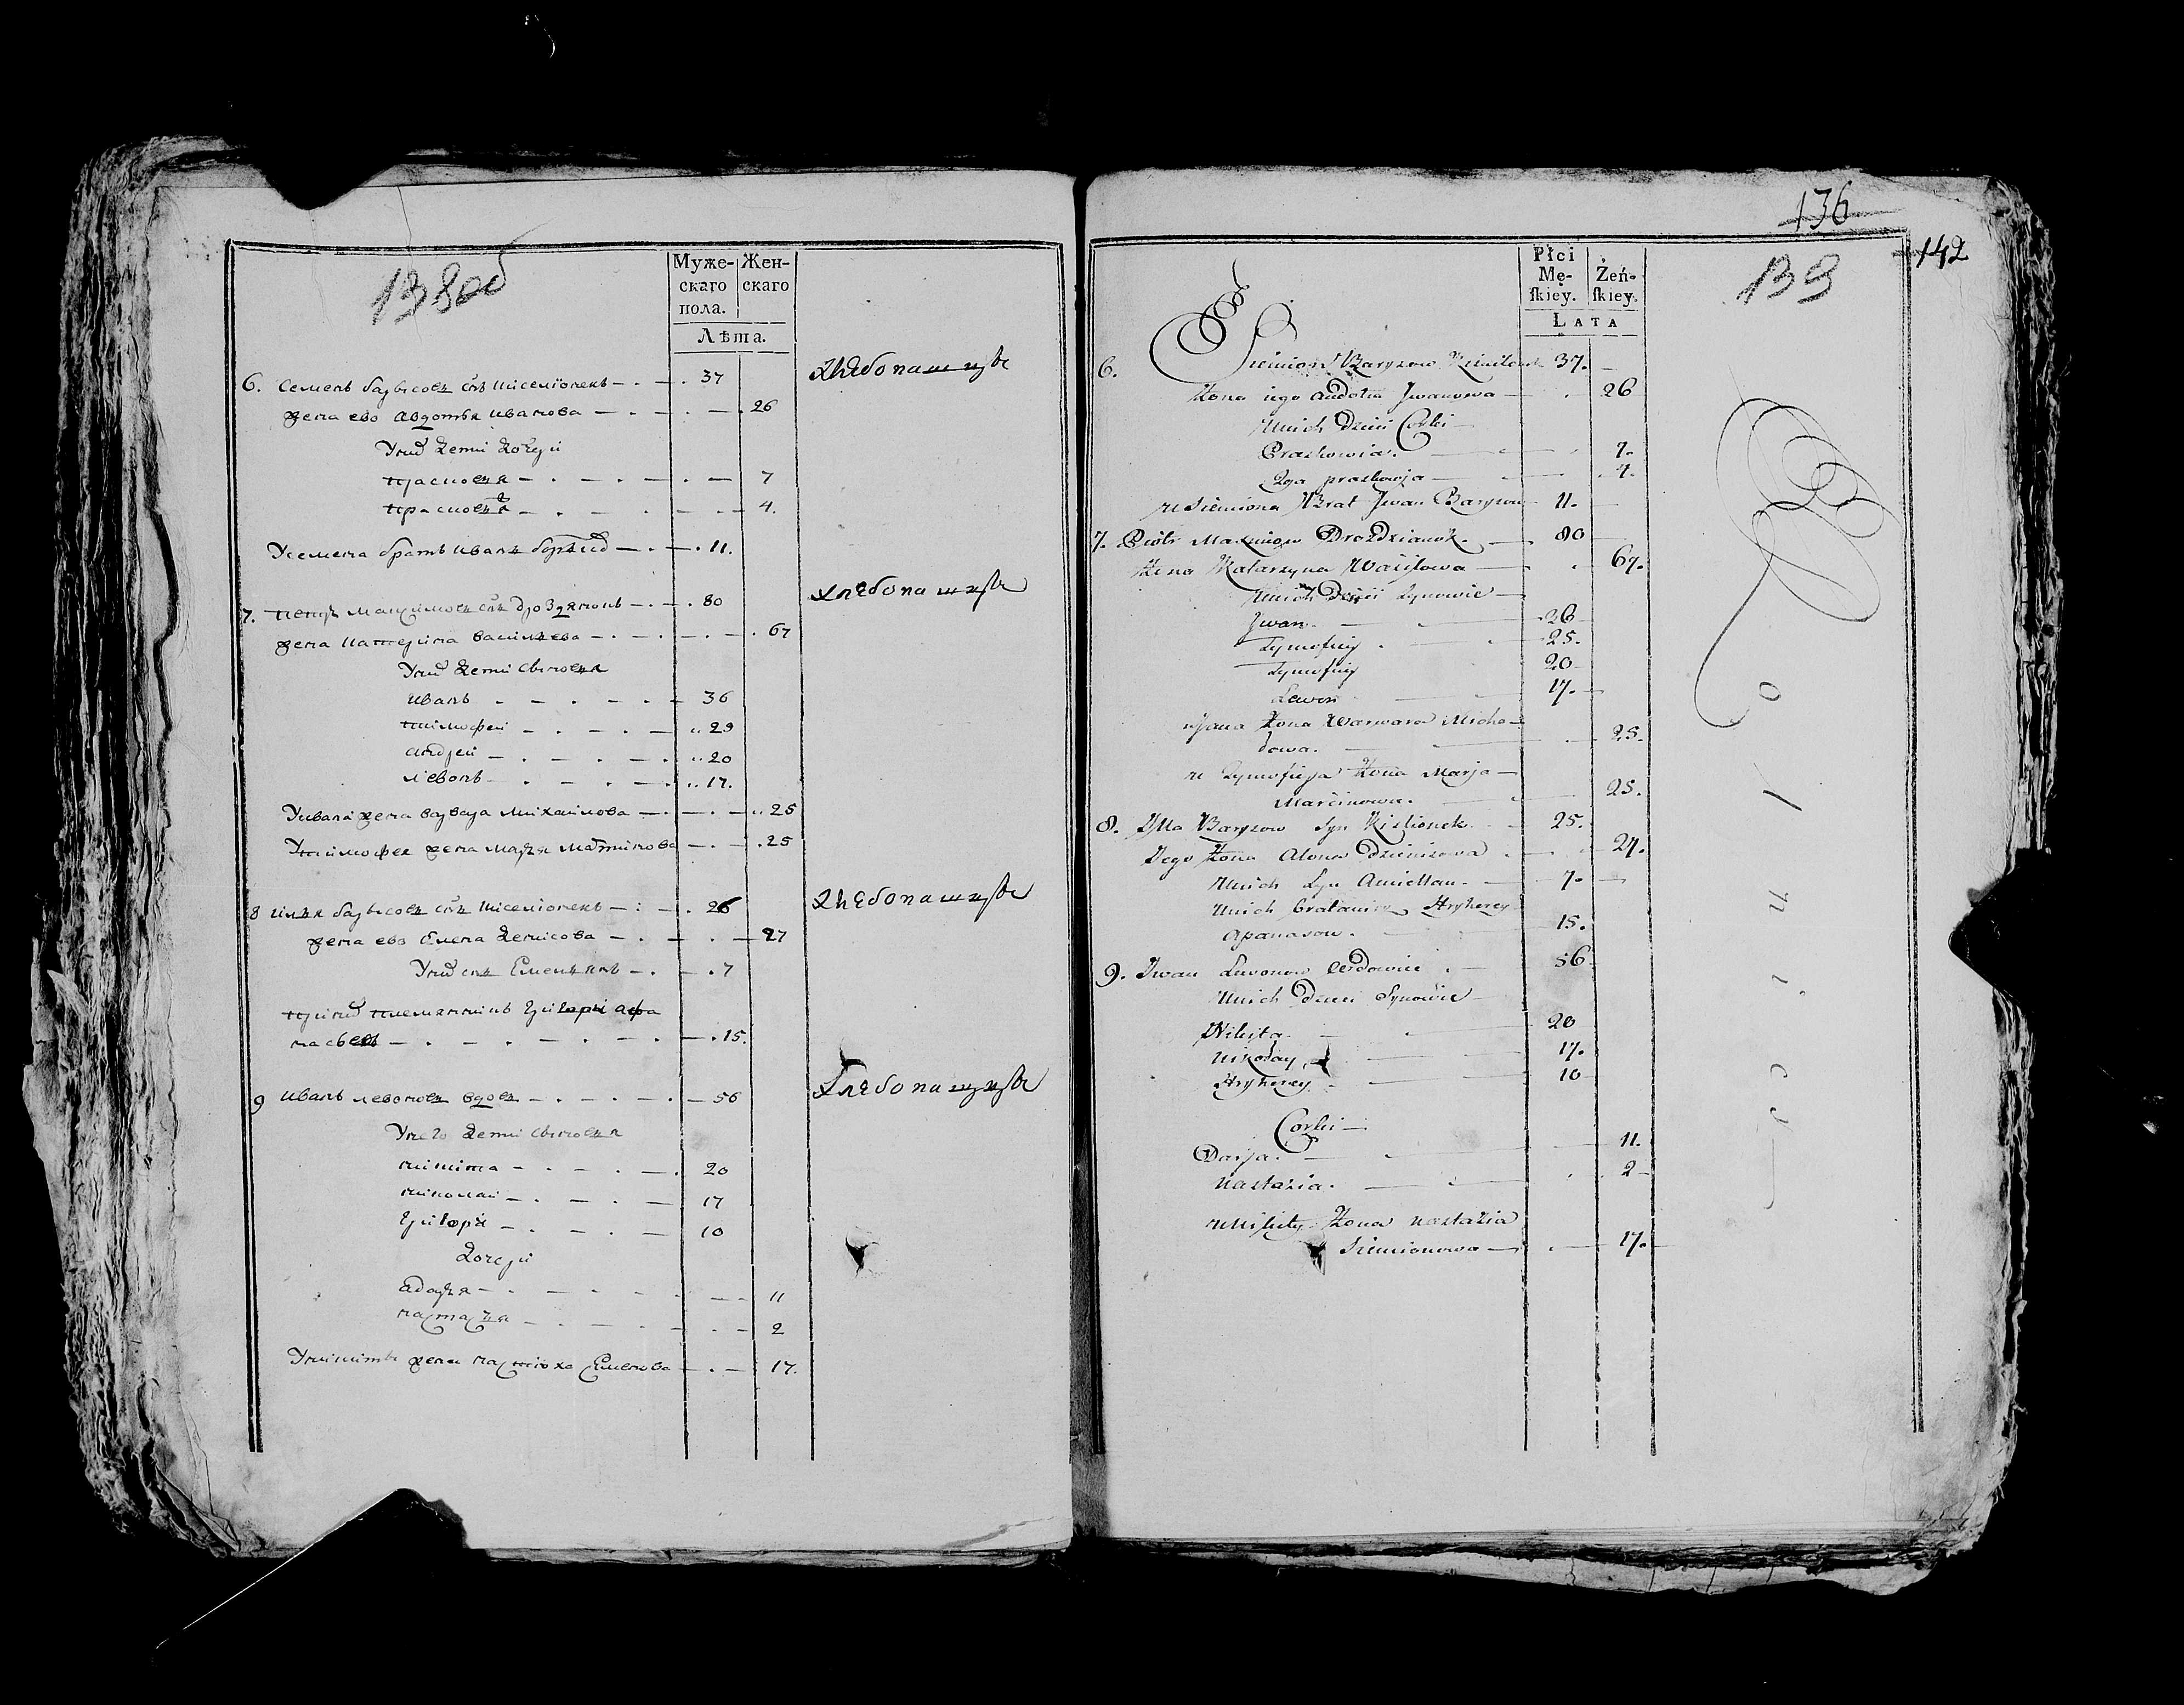 138об
Муже- Жен-
скаго скаго
пола.
Лѣта.
6. Семенъ борысовъ снъ киселіонекъ 37 Хлебопашцы
жена ево авдотья иванова 26
У них дети дочери
прасковья 7
прасковья 4.
У семена братъ иванъ 11.
7. петръ максимовъ снъ дроздянокъ 80 хлебопашцы
жена катерина васильева 67
У них дети сыновья
иванъ 36
тимофей 29
андрей 20
левонъ 17.
У ивана жена варвара михаилова 25
У тимофея жена марья мартинова 25
8 илья борысовъ снъ киселіонекъ 26 Хлебопашцы
жена ево елена денисова 27
У них снъ Емельянъ 7
при них племянникъ григорей афа
насьевъ 15.
9 иванъ левоновъ вдовъ 56 Хлебопашцы
У него дети сыновья
никита 20
николай 17
григорей 10
дочери
адарья 11
настасья 2
У никиты жена настюха Семенова 17.
136
142
139
Płci
Mę- Żeń-
skiey. skiey.
LATA
6. Siemion Baryzow 37.
Żona iego Audotia Jwanowa 26
U nich dzieci Corki
Praskowia. 7.
2ga praskowja 4.
u Siemiona Brat Jwan Baryzow 11.
7. Piotr Maximow Drozdzianok. 80
Żona Katarzyna Wasilowa 67.
U nich Dzieci Synowie
Jwan. 26
Tymofiey 25.
Tymofiey 20
Lewon 17.
u Jana Żona Warwara Micha-
łowa. 25.
u Tymofieja Żona Marja
Marcinowa. 25.
8. Jlla Baryzow syn Kislionek. 25.
Jego Żona Alona Dzienisowa 27.
U nich Syn Amiellan. 7.
U nich bratanicz Hryhorey
Apanasow. 15.
9. Jwan Lewonow 56
U nich Dzieci Synowie
Nikita 20
Nikołay 17.
Hryhorey 10
Corki
Darja. 11.
Nastazia. 2
u Nikity Żona Nastazia
Siemionowa 17.
Rolnicy